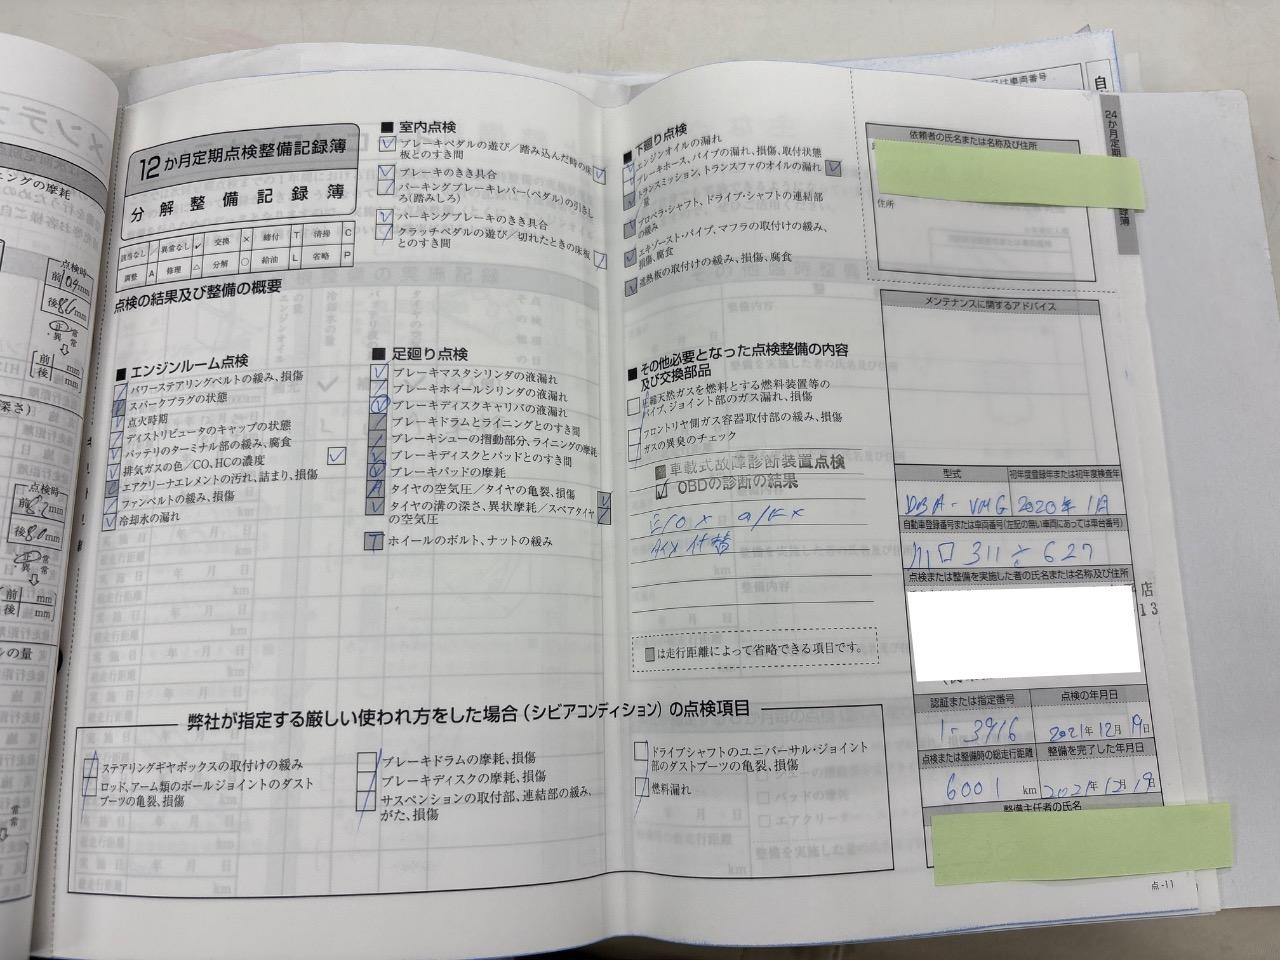 メンテナ
ニングの摩耗
点検時
前 10.4 mm
後 8.6 mm
正常
・異常
前 mm
後 mm
深さ)
点検時
前 8.2 mm
後 8.0 mm
正常
・異常
前 mm
後 mm
ルの量
12か月定期点検整備記録簿
分解整備記録簿
該当なし / 異常なし レ 交換 × 締付 T 清掃 C
調整 A 修理 △ 分解 ○ 給油 L 省略 P
点検の結果及び整備の概要
■ エンジンルーム点検
パワーステアリングベルトの緩み、損傷
スパークプラグの状態
点火時期
ディストリビュータのキャップの状態
バッテリのターミナル部の緩み、腐食
排気ガスの色/CO、HCの濃度
エアクリーナエレメントの汚れ、詰まり、損傷
ファンベルトの緩み、損傷
冷却水の漏れ
■ 室内点検
ブレーキペダルの遊び/踏み込んだ時の床
板とのすき間
ブレーキのきき具合
パーキングブレーキレバー(ペダル)の引きし
ろ(踏みしろ)
パーキングブレーキのきき具合
クラッチペダルの遊び/切れたときの床板
とのすき間
■ 足廻り点検
ブレーキマスタシリンダの液漏れ
ブレーキホイールシリンダの液漏れ
ブレーキディスクキャリパの液漏れ
ブレーキドラムとライニングとのすき間
ブレーキシューの摺動部分、ライニングの摩耗
ブレーキディスクとパッドとのすき間
ブレーキパッドの摩耗
タイヤの空気圧/タイヤの亀裂、損傷
タイヤの溝の深さ、異状摩耗/スペアタイヤ
の空気圧
T ホイールのボルト、ナットの緩み
■ 下廻り点検
エンジンオイルの漏れ
ブレーキホース、パイプの漏れ、損傷、取付状態
トランスミッション、トランスファのオイルの漏れ
量
プロペラ・シャフト、ドライブ・シャフトの連結部
の緩み
エキゾースト・パイプ、マフラの取付けの緩み、
損傷、腐食
遮熱板の取付けの緩み、損傷、腐食
■ その他必要となった点検整備の内容
及び交換部品
圧縮天然ガスを燃料とする燃料装置等の
パイプ、ジョイント部のガス漏れ、損傷
フロントリヤ側ガス容器取付部の緩み、損傷
ガスの異臭のチェック
車載式故障診断装置点検
OBDの診断の結果
E/O × O/F ×
は走行距離によって省略できる項目です。
弊社が指定する厳しい使われ方をした場合(シビアコンディション)の点検項目
ステアリングギヤボックスの取付けの緩み
ロッド、アーム類のボールジョイントのダスト
ブーツの亀裂、損傷
ブレーキドラムの摩耗、損傷
ブレーキディスクの摩耗、損傷
サスペンションの取付部、連結部の緩み、
がた、損傷
ドライブシャフトのユニバーサル・ジョイント
部のダストブーツの亀裂、損傷
燃料漏れ
は車両番号
自
24か月定期
録簿
依頼者の氏名または名称及び住所
住所
メンテナンスに関するアドバイス
型式 初年度登録年または初年度検査年
DBA-VM6 2020年1月
自動車登録番号または車両番号(左記の無い車両にあっては車台番号)
川口 311 627
点検または整備を実施した者の氏名または名称及び住所
店
13
認証または指定番号 点検の年月日
1-3916 2021年12月19日
点検または整備時の総走行距離 整備を完了した年月日
6001 km 2021年12月19日
整備主任者の氏名
点-11